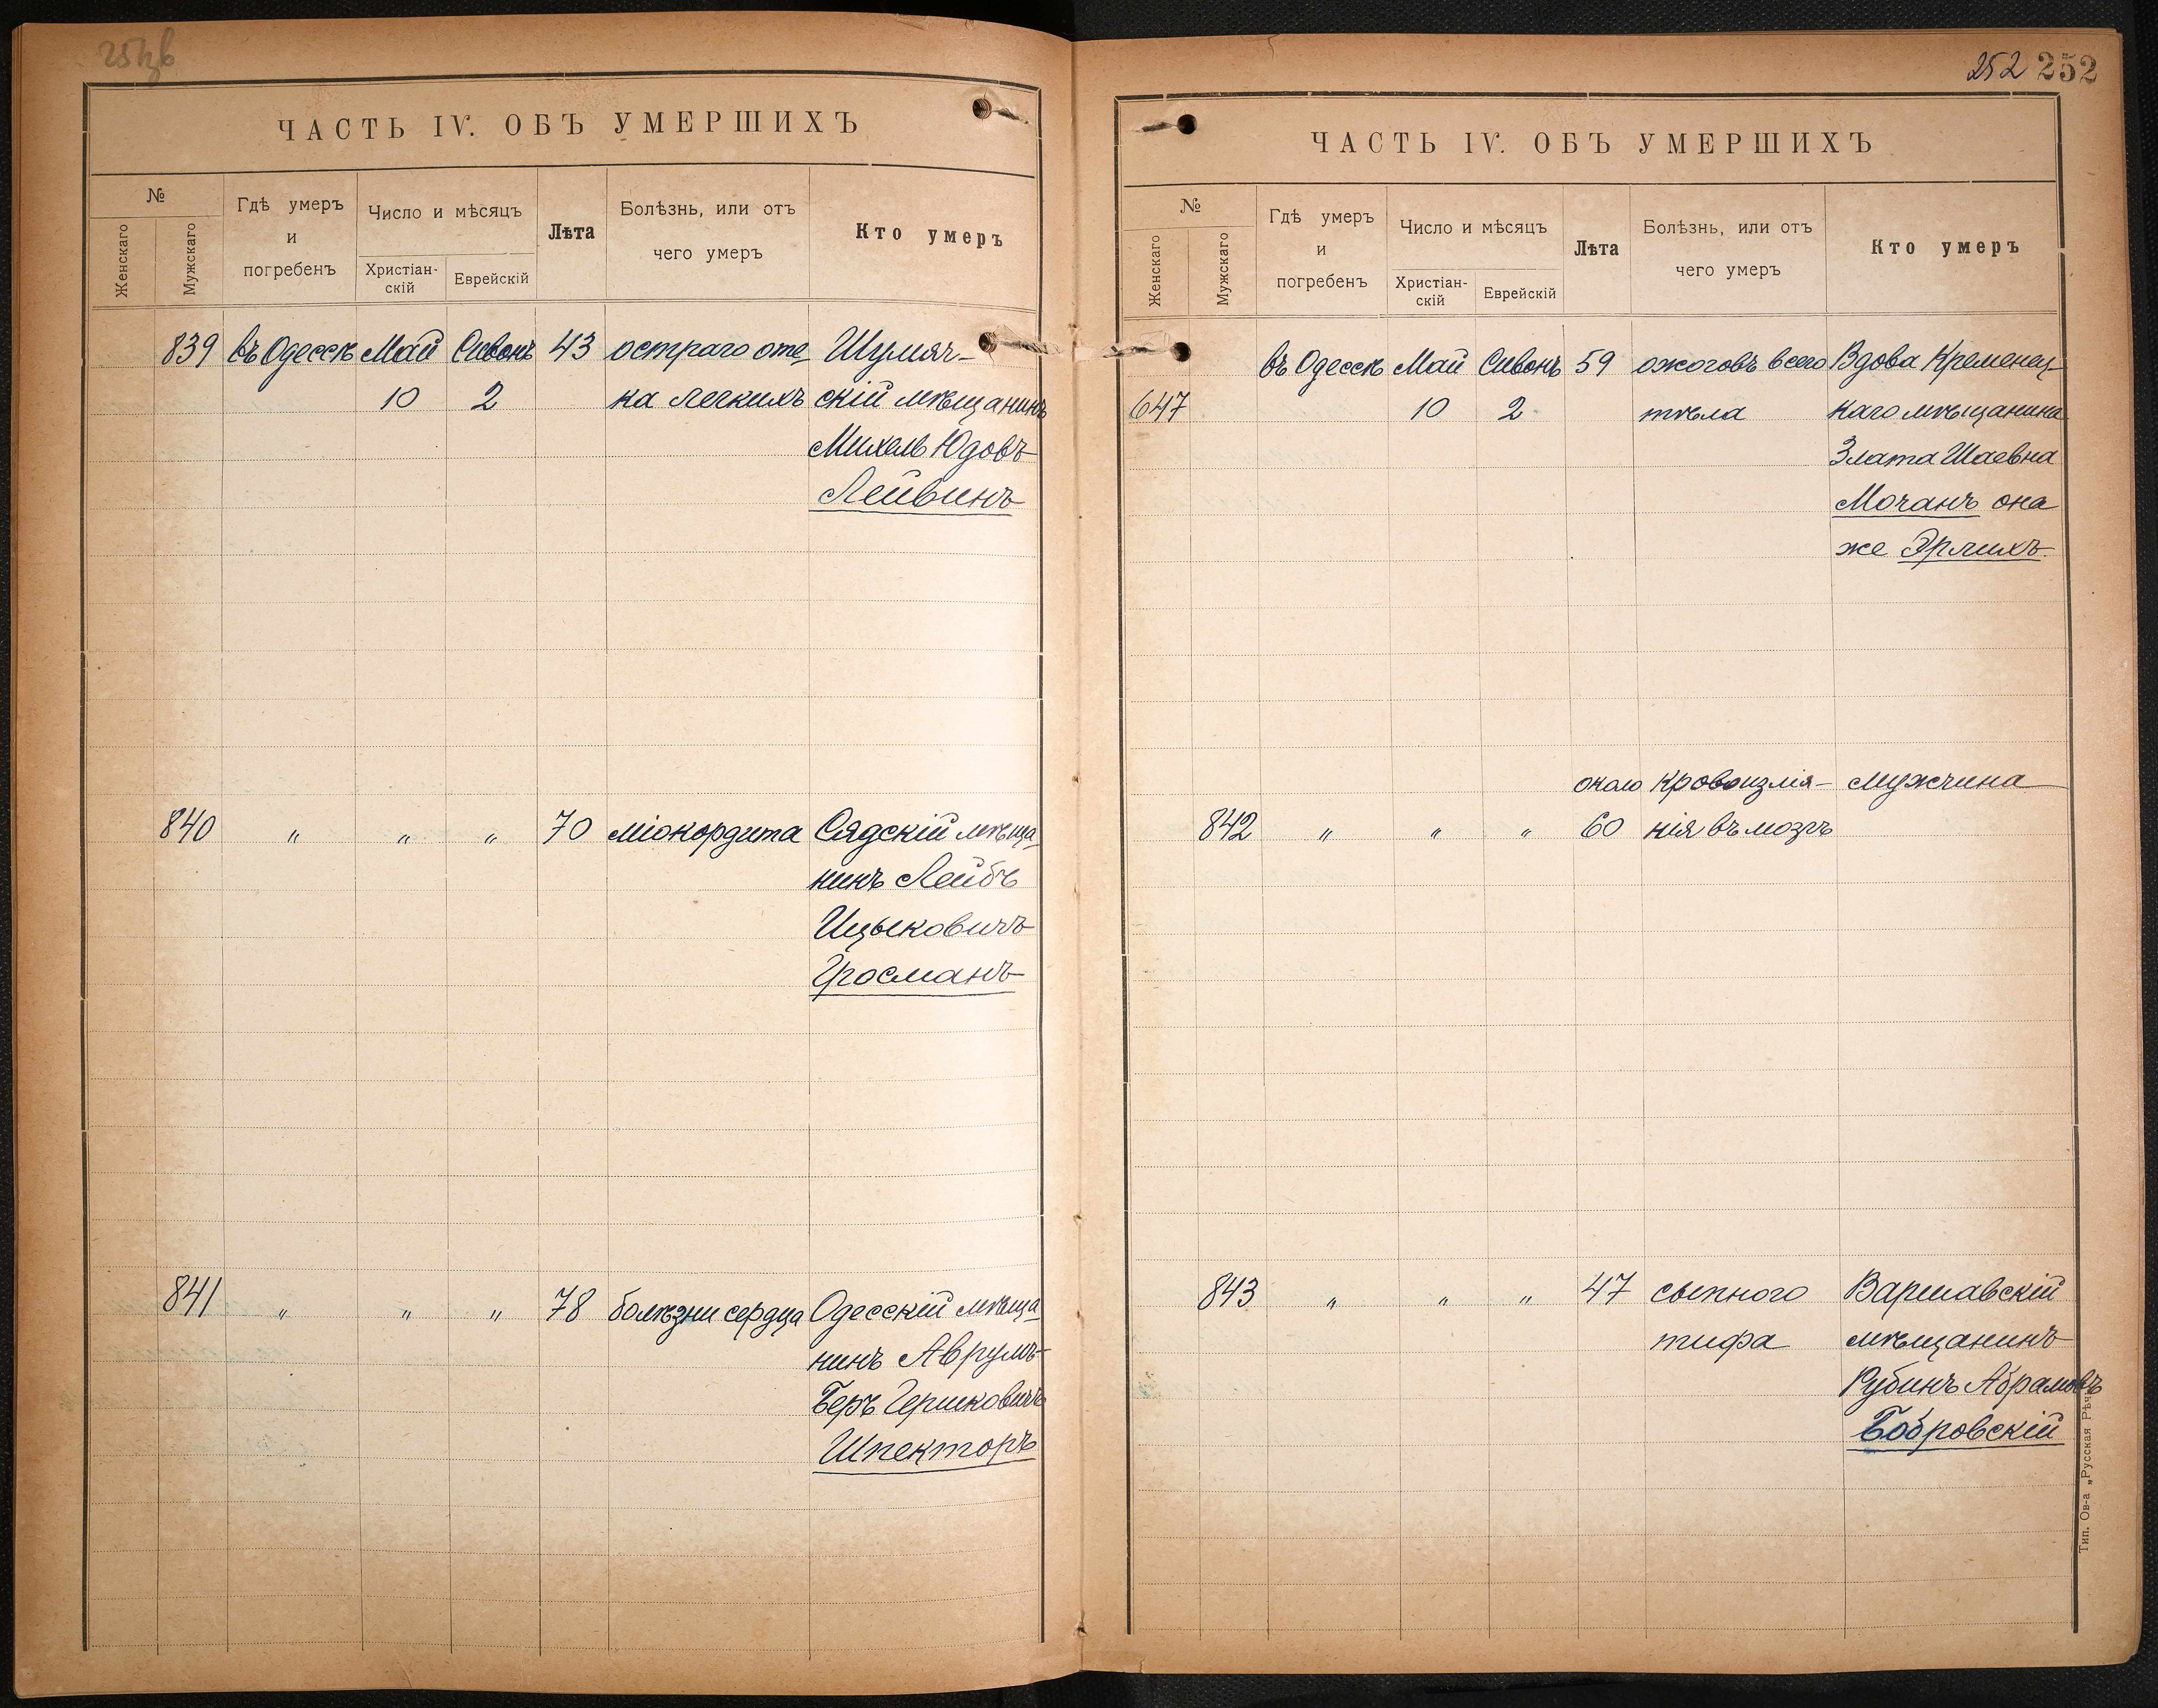 ЧАСТЬ IV. ОБЪ УМЕРШИХЪ
№
Женскаго
Мужскаго
Гдѣ умеръ
и
погребенъ
Число и мѣсяцъ
Христіан-
скій
Еврейскій
Лѣта
Болѣзнь, или отъ
чего умеръ
Кто умеръ
839 въ Одессѣ Май Сивонъ 43 остраго оте Шумяч-
10 2 ка легкихъ скій мѣщанинъ
Михель Юдовъ
Лейвинъ
840 " " " 70 міокордита Сядскій мѣща
нинъ Лейбъ
Ицьковичъ
Гросманъ
841 " " " 78 болѣзни сердца Одесскій мѣща
нинъ Аврумъ
Беръ Гершковичъ
Шпекторъ
252 252
ЧАСТЬ IV. ОБЪ УМЕРШИХЪ
№
Женскаго
Мужскаго
Гдѣ умеръ
и
погребенъ
Число и мѣсяцъ
Христіан-
скій
Еврейскій
Лѣта
Болѣзнь, или отъ
чего умеръ
Кто умеръ
въ Одессѣ Май Сивонъ 59 ожоговъ всего Вдова Кременец-
647 10 2 тѣла каго мѣщанина
Злата Шаевна
Мочанъ она
же Эрлихъ
около Кровоизлія- мужчина
842 " " " 60 нія въ мозгъ
843 " " " 47 сыпного Варшавскій
тифа мѣщанинъ
Рубинъ Абрамовъ
Бобровскій
Тип. Ов-а „Русская Рѣчь"